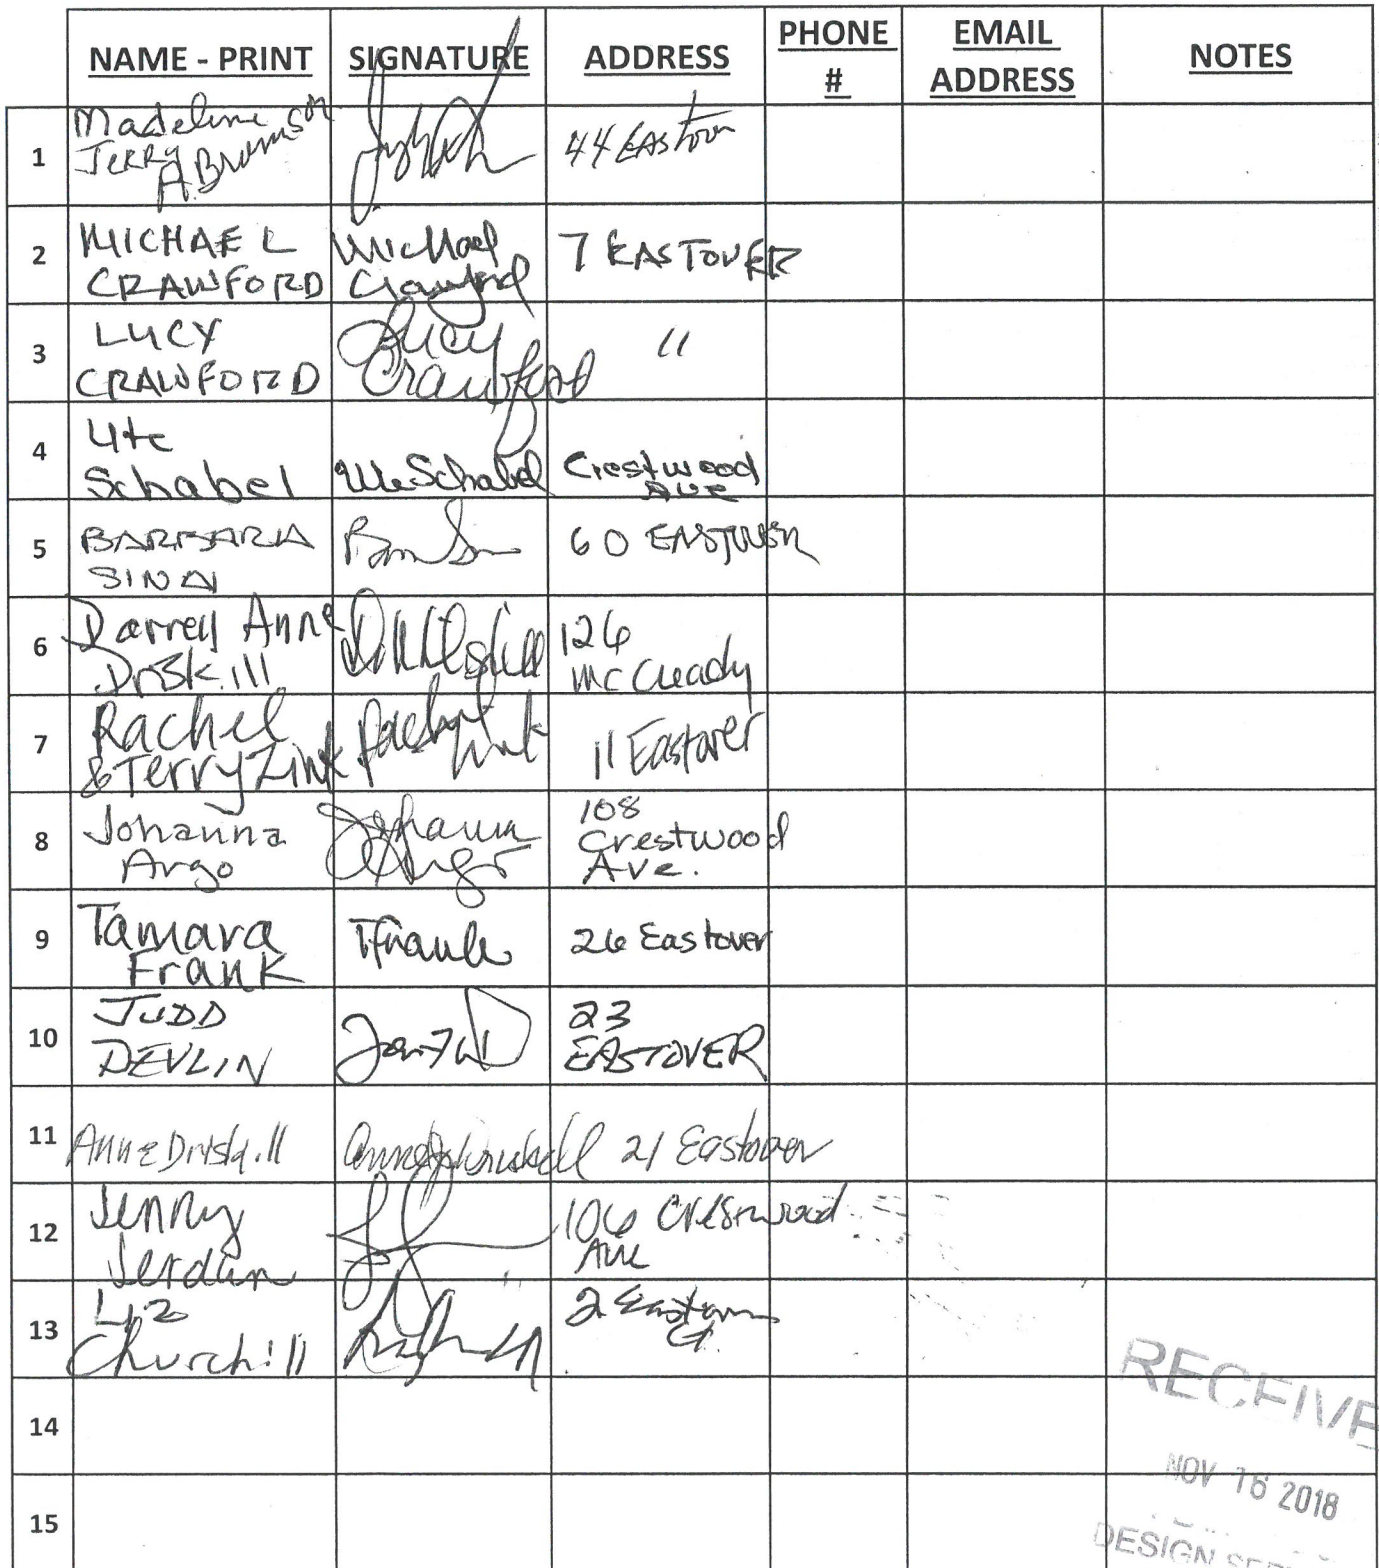 NAME - PRINT SIGNATURE ADDRESS PHONE # EMAIL ADDRESS NOTES
1 Madeline Jerry Abramson 44 Eastover
2 MICHAEL CRAWFORD Michael Crawford 7 EASTOVER
3 LUCY CRAWFORD Lucy Crawford "
4 Ute Schabel Ute Schabel Crestwood Ave
5 BARBARA SINAI 60 EASTOVER
6 Darrell Anne Driskill 126 McCready
7 Rachel & Terry Zink Rachel Zink 11 Eastover
8 Johanna Argo Johanna Argo 108 Crestwood Ave.
9 Tamara Frank TFrank 26 Eastover
10 JUDD DEVLIN 23 EASTOVER
11 Anne Driskill 21 Eastover
12 Jenny Jerdan 106 Crestwood Ave
13 Liz Churchill 2 Eastover Ct.
14
15
RECEIVE
NOV 16 2018
DESIGN SER